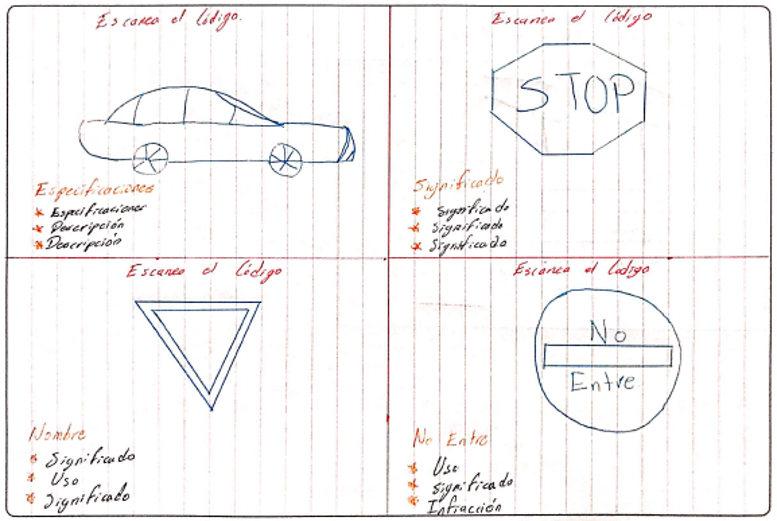 Escanea el Código.
Especificaciones
* Especificaciones
* Descripción
* Descripción
Escanea el Código
STOP
Significado
* Significado
* Significado
* Significado
Escanea el Código
Nombre
* Significado
* Uso
* Significado
Escanea el Código
No
Entre
No Entre
* Uso
* Significado
* Infracción